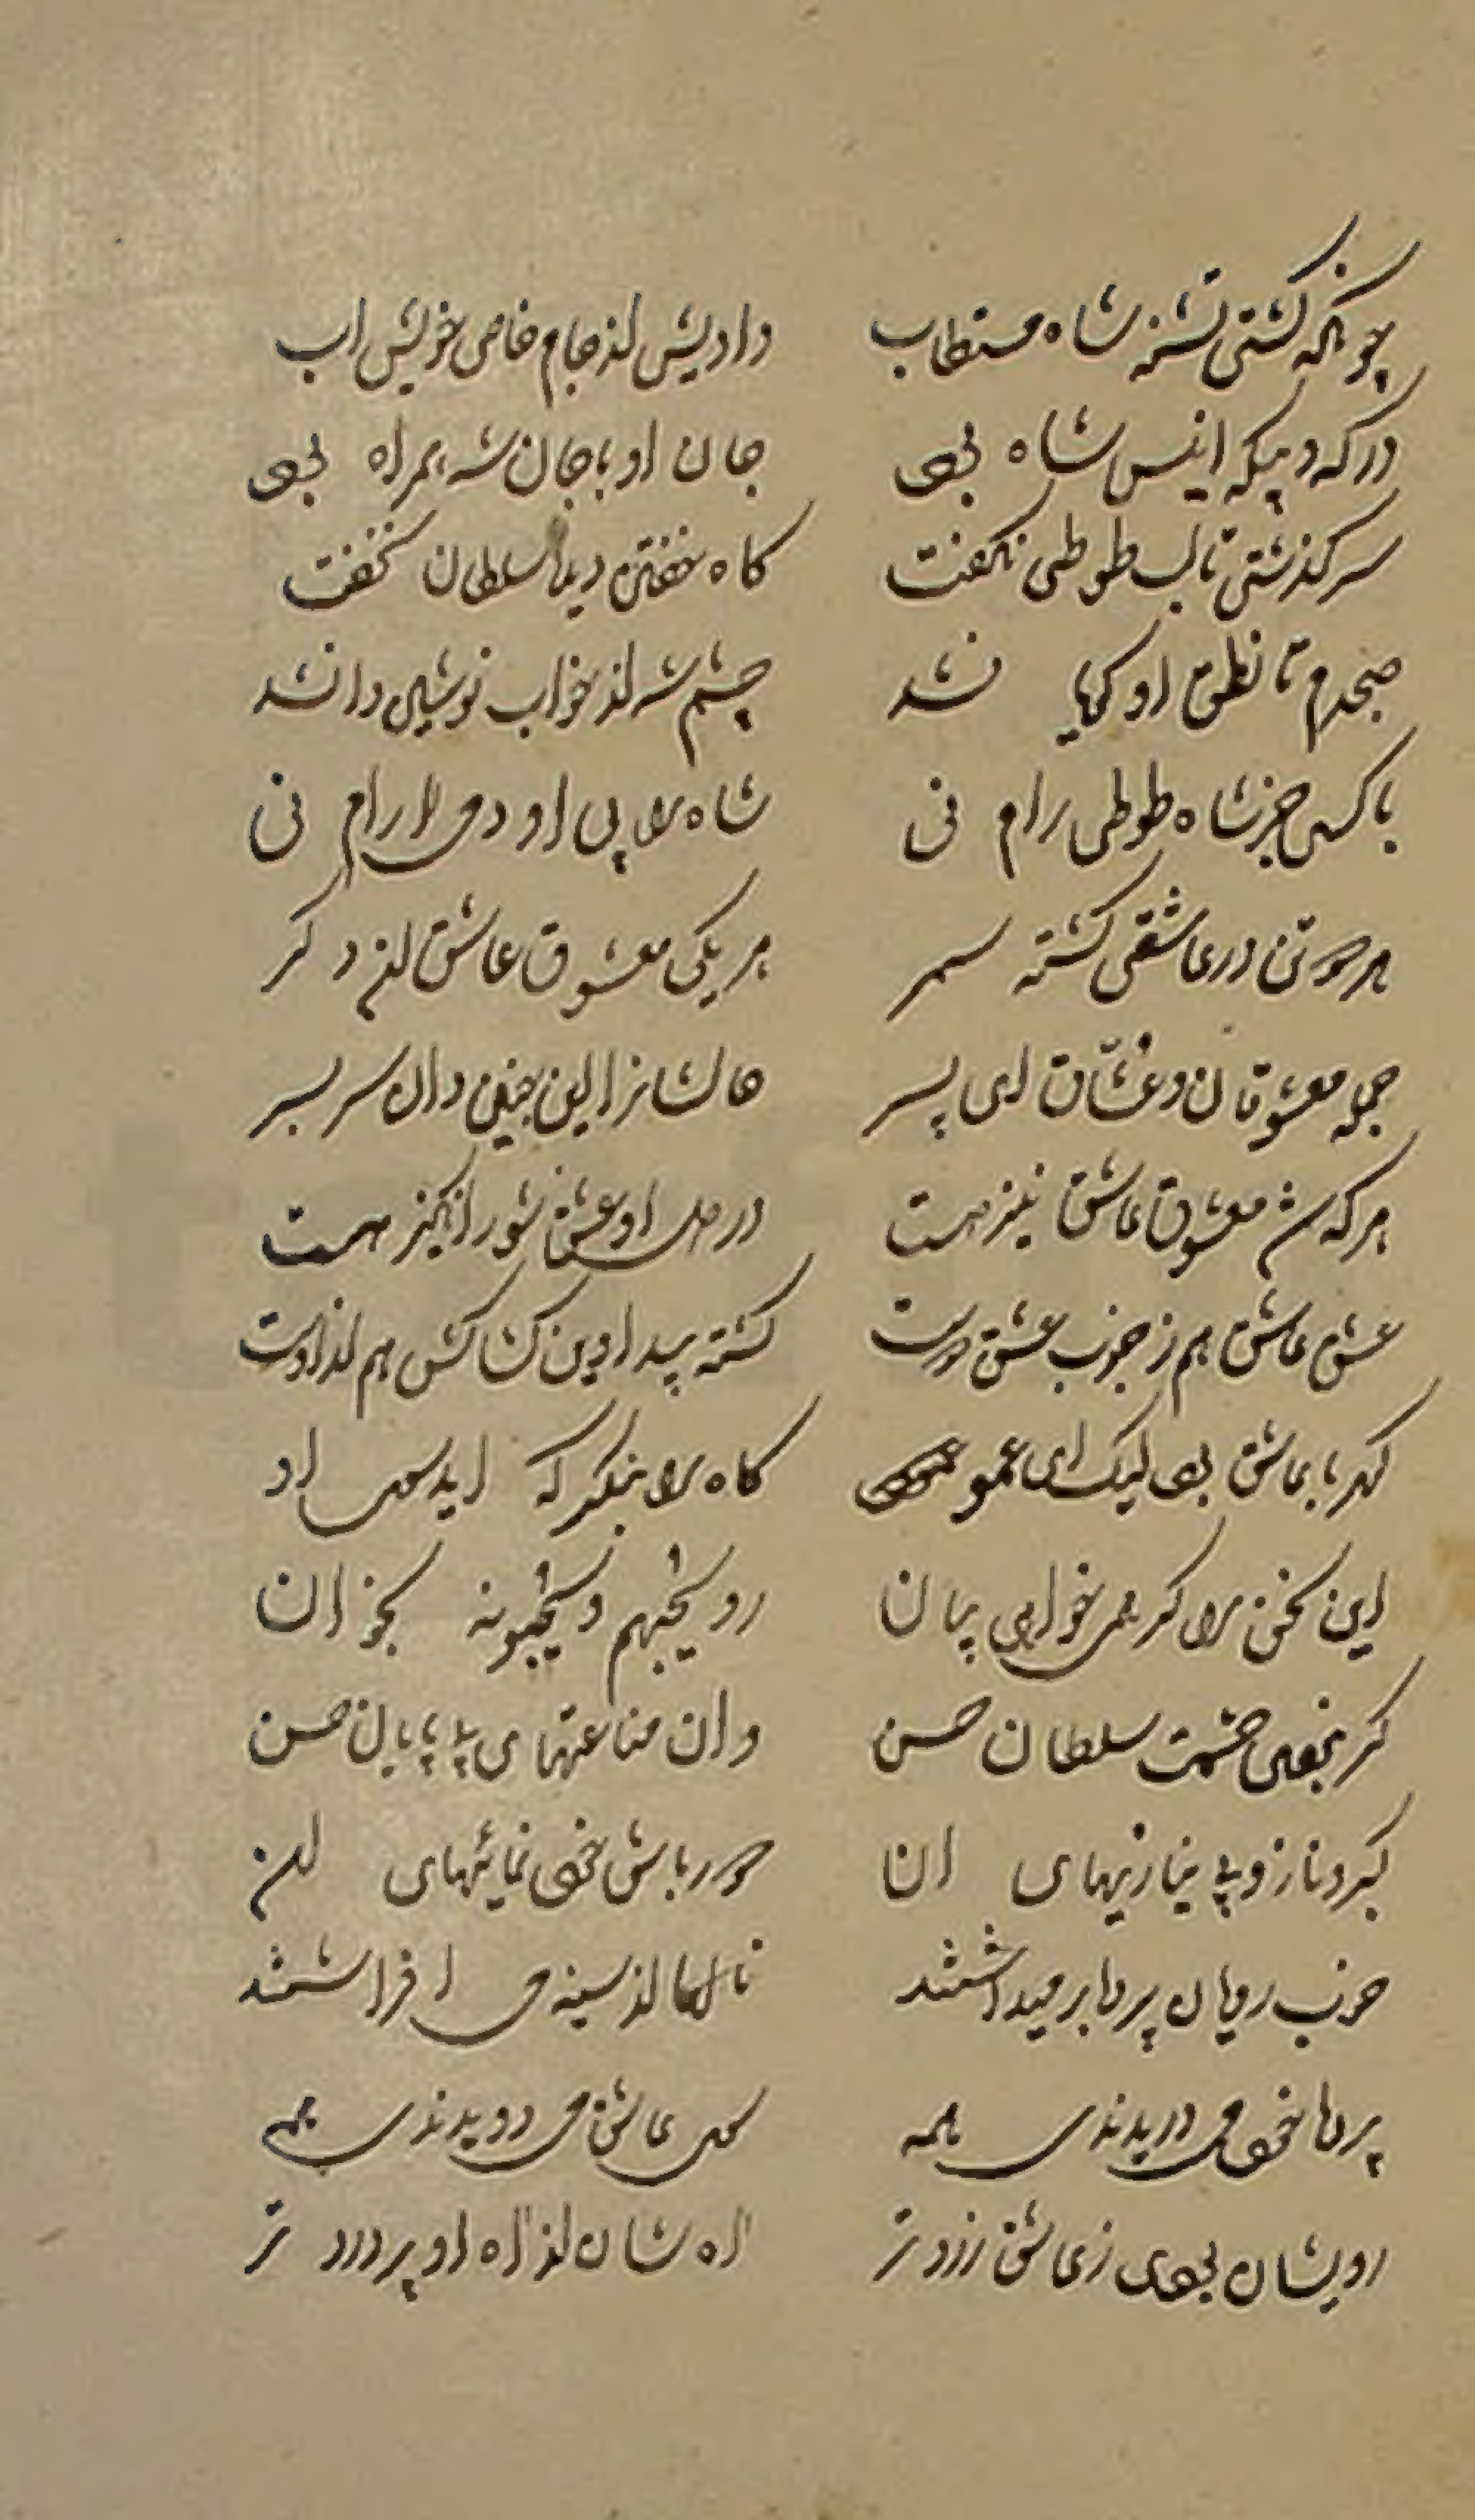 چونکه گشتی تشنه شاه مستطاب دادیش از جام خاص خویش اب
در که و بیکه انیس شاه بودی جان او با جان شه همراه بودی
سرگذشتی تا لب طوطی نگفت گاه خفتن دیده سلطان نخفت
صبحدم تا نطق او گویا نشد چشم شه از خواب نوشین وا نشد
با کسی جز شاه طوطی رام نی شاه را بی او دمی ارام نی
هر دو تن در عاشقی گشته سمر هر یکی معشوق و عاشق از دگر
جمله معشوقان و عشاق ای پسر حالشانرا این چنین دان سر بسر
هر که شد معشوق عاشق نیز هست در دل او عشق شورانگیز هست
عشق عاشق هم ز جذب عشق دوست گشته پیدا وین کشاکش هم از اوست
کهربا عاشق بود لیک ای عمو کاه را بنگر که اید سوی او
این سخن را گر همی خواهی بیان رو یحبهم و یحبونه بخوان
گر نبودی حشمت سلطان حسن وان مناعتهای بی پایان حسن
کبر و ناز و بی نیازیهای ان دور باش خود نمائیهای ان
خوب رویان پرده بر میداشتند نالها از سینه می افراشتند
پردها خود می دریدندی همه سوی عاشق می دویدندی همه
رویشان بودی ز عاشق زرد تر اه شان از اه او پر درد تر